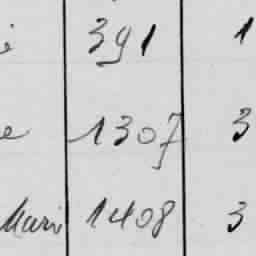 391 1
e 1307 3
Mari 1408 3